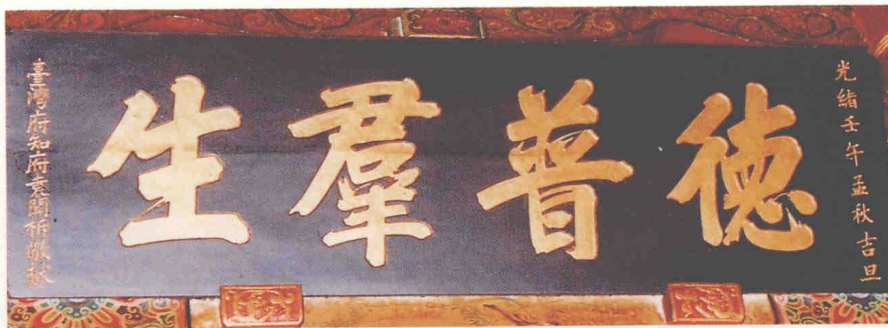 光緒壬午孟秋吉旦
德普羣生
臺灣府知府袁聞柝敬獻